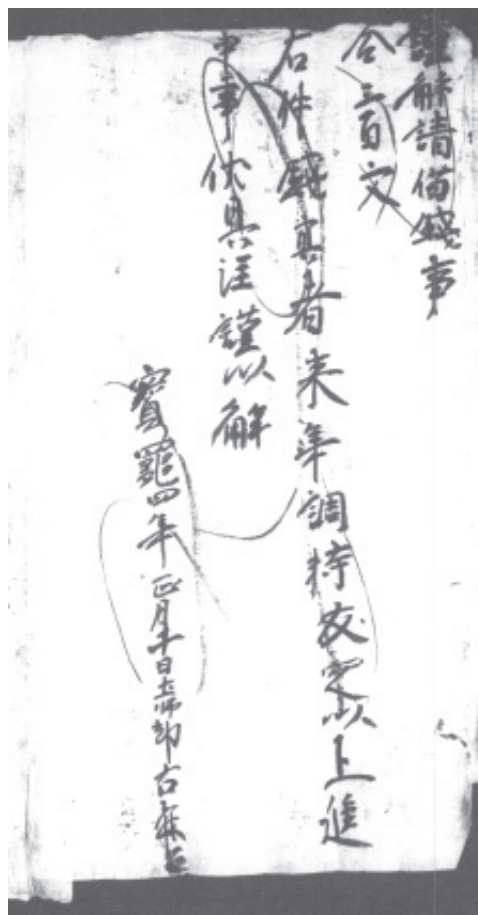 謹解請借錢事
合三百文
右件錢者来年調時必定以上進
申事伏具注謹以解
寳龜四年正月十日土師部古麻呂